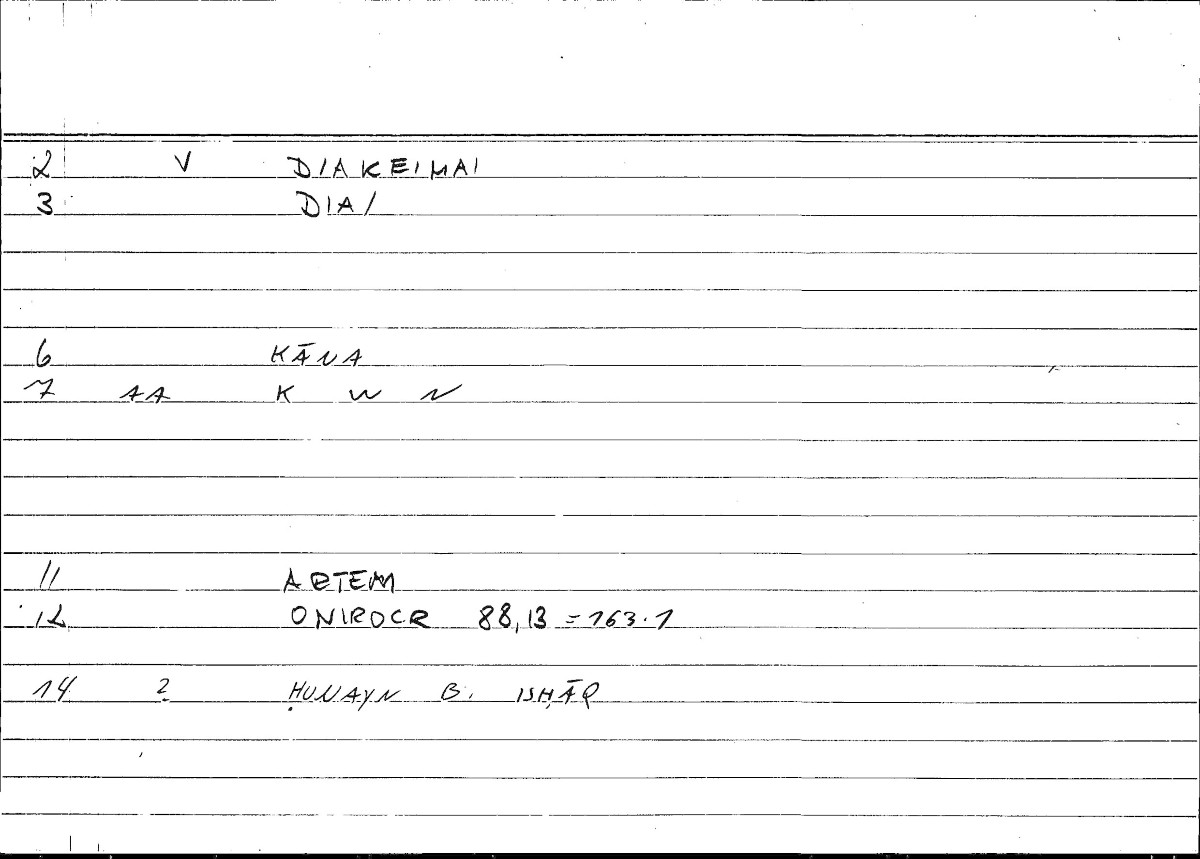 2 V DIAKEIMAI
3 DIA/
6 KĀNA
7 AA K W N
11 ARTEM
12 ONIROCR 88,13 = 163.1
14 2 ḤUNAYN B. ISḤĀQ